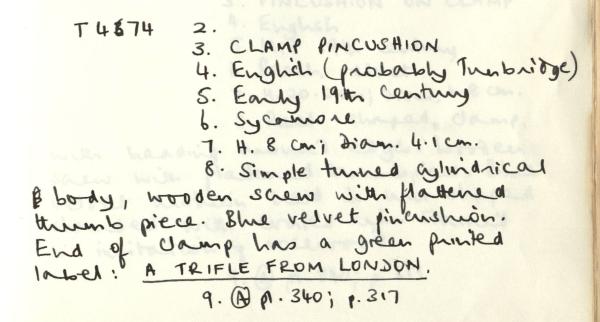 T 4674 2.
3. CLAMP PINCUSHION
4. English (probably Tunbridge)
5. Early 19th Century
6. Sycamore
7. H. 8 cm; Diam. 4.1 cm.
8. Simple turned cylindrical
body, wooden screw with flattened
thumb piece. Blue velvet pincushion.
End of clamp has a green printed
label: A TRIFLE FROM LONDON.
9. Ⓐ pl. 340; p. 317